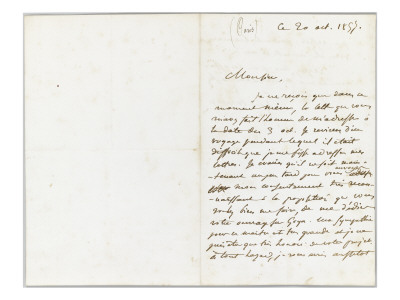 (Paris)
Ce 20 oct. 1855.
Monsieur.
Je ne reçois que dans ce
moment même, la lettre que vous
m'avez fait l'honneur de m'adresser à
la date du 3 oct. Je reviens d'un
voyage pendant lequel il était
difficile que je me fisse adresser mes
lettres. Je crains qu'il ne soit main-
-tenant un peu tard pour vous envoyer
mon consentement très recon-
-naissant à la proposition que vous
voulez bien me faire de me dédier
votre ouvrage sur Goya. Ma sympathie
pour ce maître est très grande et je ne
puis être que très honoré
à tous égards je vous aurais